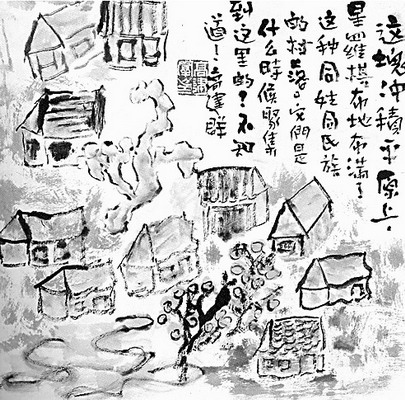 这塊冲積平原上，
星羅棋布地布滿了
这种同姓同民族
的村落。它們是
什么時候聚集
到这里的？不知
道！高建群